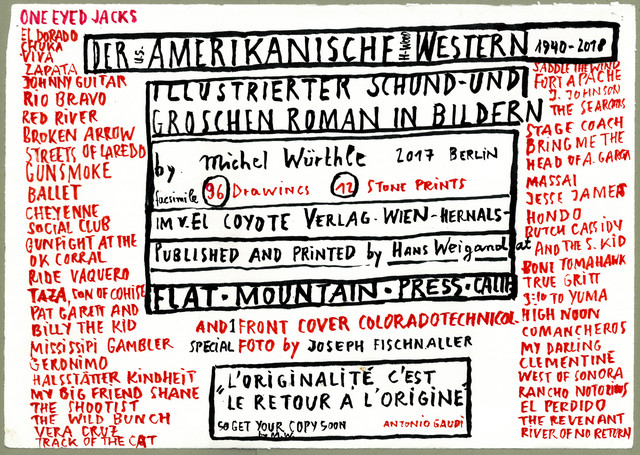 ONE EYED JACKS
EL DORADO
CHUKA
VIVA
ZAPATA
JOHNNY GUITAR
RIO BRAVO
RED RIVER
BROKEN ARROW
STREETS OF LAREDO
GUNSMOKE
BALLET
CHEYENNE
SOCIAL CLUB
GUNFIGHT AT THE
OK CORRAL
RIDE VAQUERO
TAZA, SON OF COHISE
PAT GARETT AND
BILLY THE KID
MISSISIPI GAMBLER
GERONIMO
HALSTÄTTER KINDHEIT
MY BIG FRIEND SHANE
THE SHOOTIST
THE WILD BUNCH
VERA CRUZ
TRACK OF THE CAT
DER U.S. AMERIKANISCHE H-WOOD WESTERN 1940-2018
ILLUSTRIERTER SCHUND-UND
GROSCHEN ROMAN IN BILDERN
by Michel Würthle 2017 BERLIN
facsimile 96 Drawings 12 STONE PRINTS
IM V. EL COYOTE VERLAG. WIEN-HERNALS-
PUBLISHED AND PRINTED by HANS Weigand at
FLAT·MOUNTAIN·PRESS·CALIF
AND 1 FRONT COVER COLORADOTECHNICOL.
SPECIAL FOTO by JOSEPH FISCHNALLER
„L'ORIGINALITÉ, C'EST
LE RETOUR A L'ORIGINE"
SO GET YOUR COPY SOON ANTONIO GAUDI
by M.W.
SADDLE THE WIND
FORT APACHE
J. JOHNSON
THE SEARCHERS
STAGE COACH
BRING ME THE
HEAD OF A. GARCIA
MASSAI
JESSE JAMES
HONDO
BUTCH CASSIDY
AND THE S. KID
BONE TOMAHAWK
TRUE GRITT
3:10 TO YUMA
HIGH NOON
COMANCHEROS
MY DARLING
CLEMENTINE
WEST OF SONORA
RANCHO NOTORIOUS
EL PERDIDO
THE REVENANT
RIVER OF NO RETURN